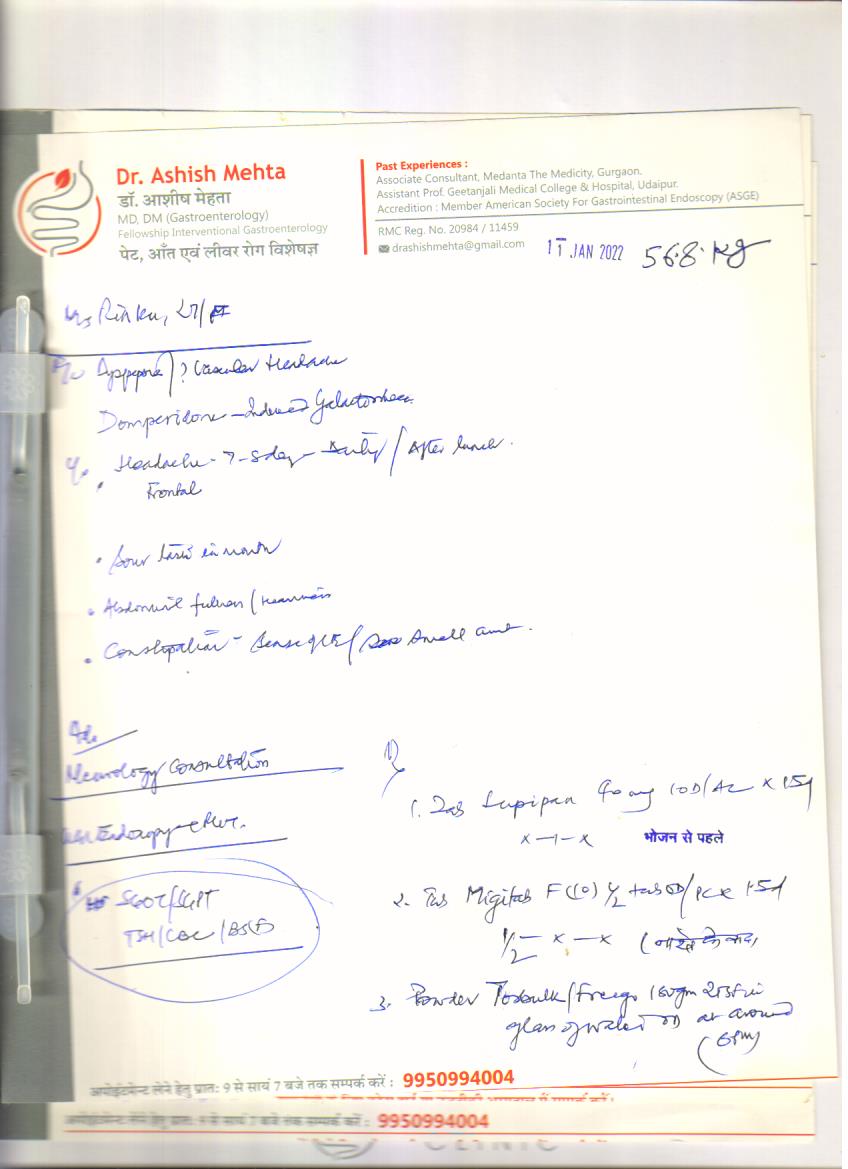 Dr. Ashish Mehta
डॉ. आशीष मेहता
MD, DM (Gastroenterology)
Fellowship Interventional Gastroenterology
पेट, आँत एवं लीवर रोग विशेषज्ञ
Past Experiences :
Associate Consultant, Medanta The Medicity, Gurgaon.
Assistant Prof. Geetanjali Medical College & Hospital, Udaipur.
Accredition : Member American Society For Gastrointestinal Endoscopy (ASGE)
RMC Reg. No. 20984 / 11459
drashishmehta@gmail.com
11 JAN 2022 56.8 kg
Ms Rinku, 27/F
? Vascular Headache
Domperidone - Induced Galactorrhea
Headache - 7-8 day - / After lunch.
Frontal
Sour taste in mouth
Abdominal fullness / heaviness
Constipation - Sense of IE / small amt.
Adv.
Neurology Consultation
Endoscopy
SGOT/SGPT
TSH/CBC/BS(F)
1. Tab 40 mg 1 OD/AC x 15d
x - 1 - x भोजन से पहले
2. Tab Migitab F (10) 1/2 tab OD/PC x 15d
1/2 - x - x
3. Powder
glass of water at around